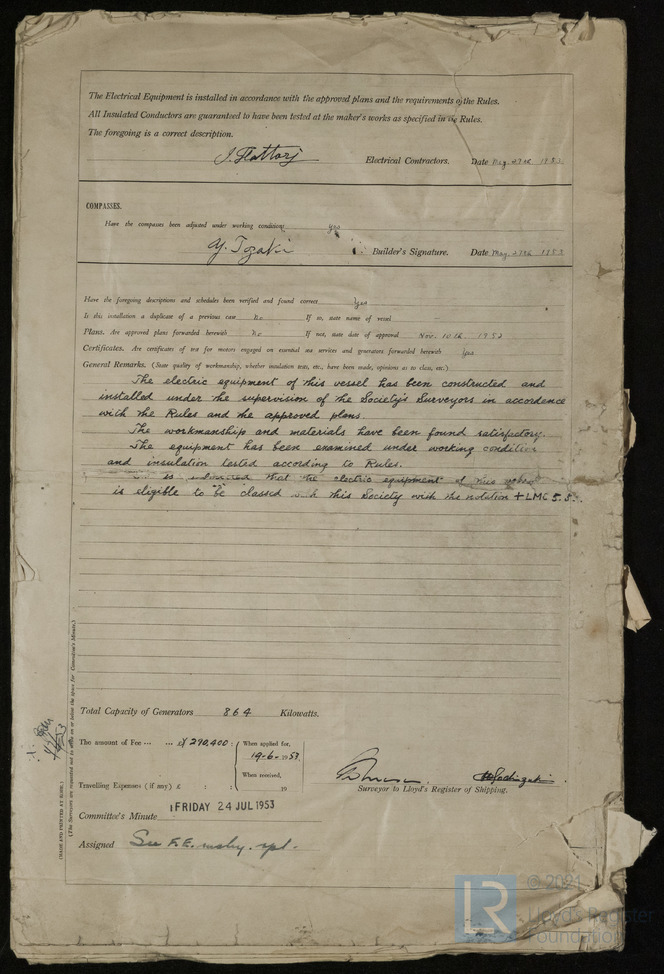 The Electrical Equipment is installed in accordance with the approved plans and the requirements of the Rules.
All Insulated Conductors are guaranteed to have been tested at the maker's works as specified in the Rules.
The foregoing is a correct description.
Electrical Contractors. Date 1953
COMPASSES.
Have the compasses been adjusted under working conditions yes
Builder's Signature. Date May. 27th 1953
Have the foregoing descriptions and schedules been verified and found correct Yes
Is this installation a duplicate of a previous case No If so, state name of vessel
Plans. Are approved plans forwarded herewith No If not, state date of approval Nov. 10th. 1952
Certificates. Are certificates of test for motors engaged on essential sea services and generators forwarded herewith Yes
General Remarks. (State quality of workmanship, whether insulation tests, etc., have been made, opinions as to class, etc.)
The electric equipment of this vessel has been constructed and
installed under the supervision of the Society's Surveyors in accordance
with the Rules and the approved plans.
The workmanship and materials have been found satisfactory.
The equipment has been examined under working condition
and insulation tested according to Rules.
is submitted that the electric equipment of this vessel
is eligible to be classed with this Society with the notation + LMC 5.5
Total Capacity of Generators 864 Kilowatts.
The amount of Fee ... ... £¥290,400 : When applied for,
19-6-1953
When received,
Travelling Expenses (if any) £ : : 19
Surveyor to Lloyd's Register of Shipping.
Committee's Minute FRIDAY 24 JUL 1953
Assigned See F.E. rpt.
(The Surveyors are requested not to write on or below the space for Committee's Minute.)
(MADE AND PRINTED AT KOBE.)
© 2021
Lloyd's Register
Foundation
LR